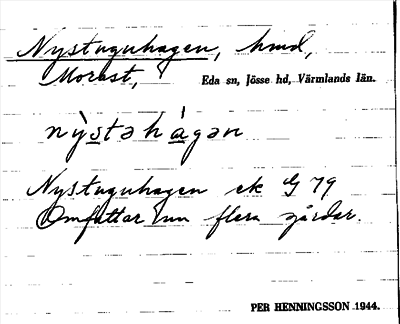 Nystuguhagen, hmd,
Morast,
Eda sn, Jösse hd, Värmlands län.
nỳstəhágən
Nystuguhagen ek G 79
Omfattar nu flera gårdar.
PER HENNINGSSON 1944.